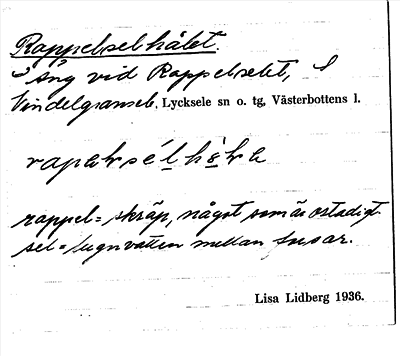 Rappelselhålet.
Äng vid Rappelselet, I
Vindelgransele, Lycksele sn o. tg, Västerbottens l.
rappel = skräp, något som är ostadigt
sel = lugnvatten mellan forsar.
Lisa Lidberg 1936.